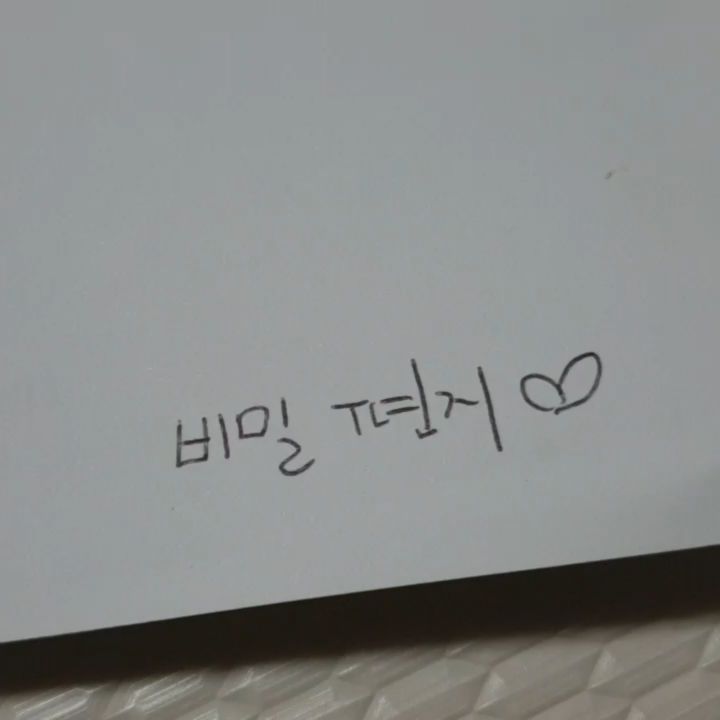 비밀 편지♡